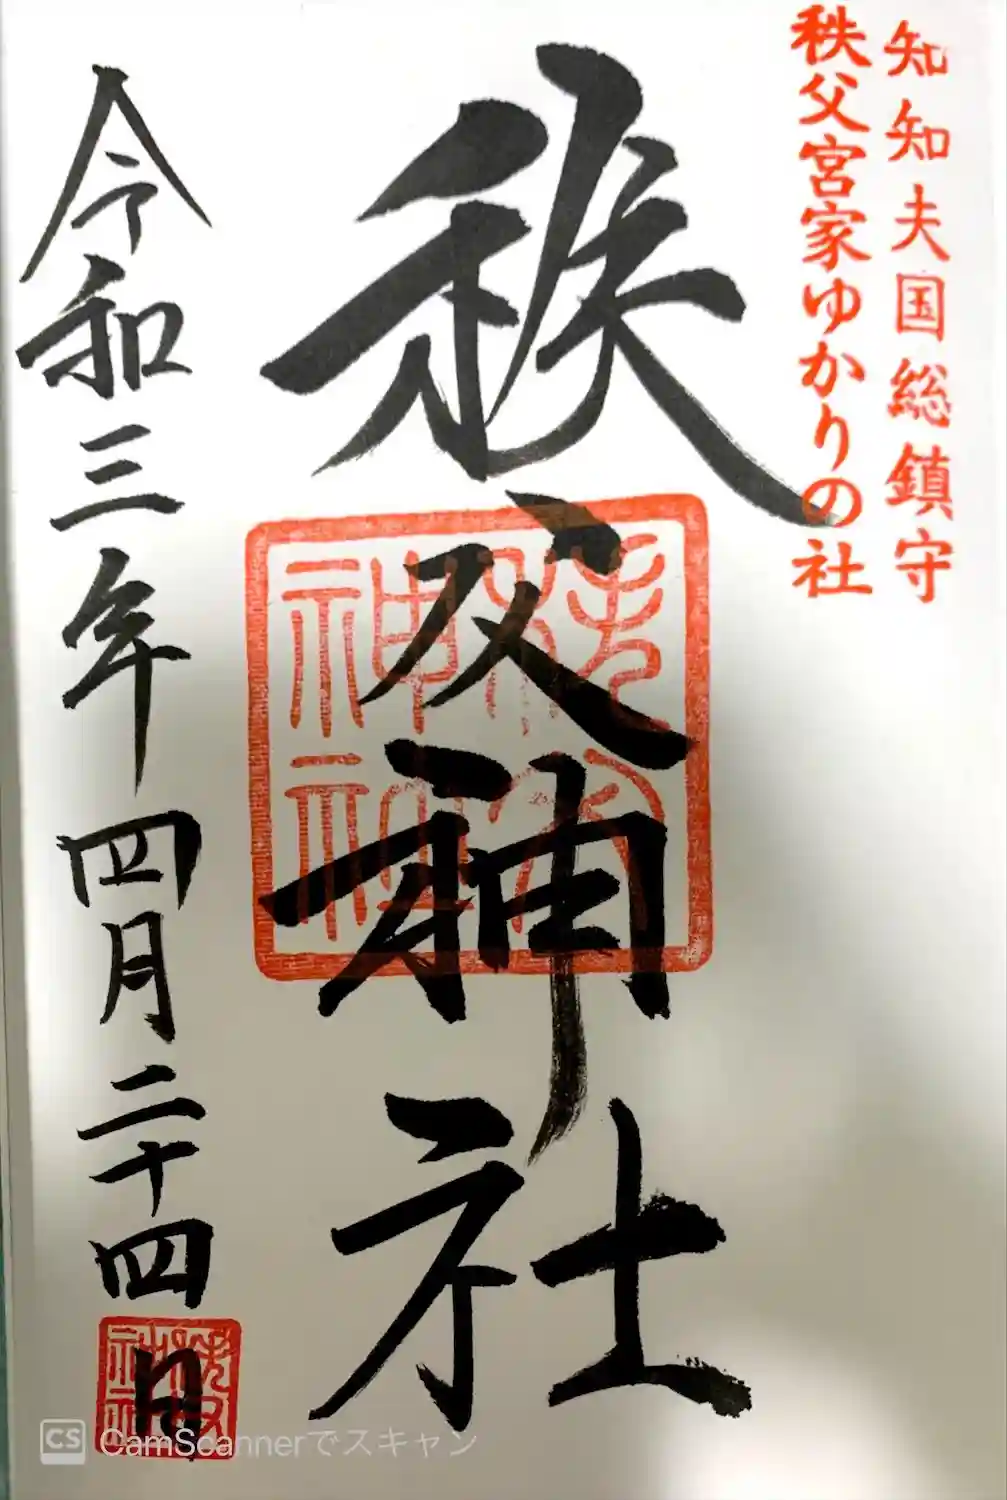 知知夫国総鎮守
秩父宮家ゆかりの社
秩父神社
秩父神社
令和三年四月二十四日
秩父神社
CS CamScannerでスキャン